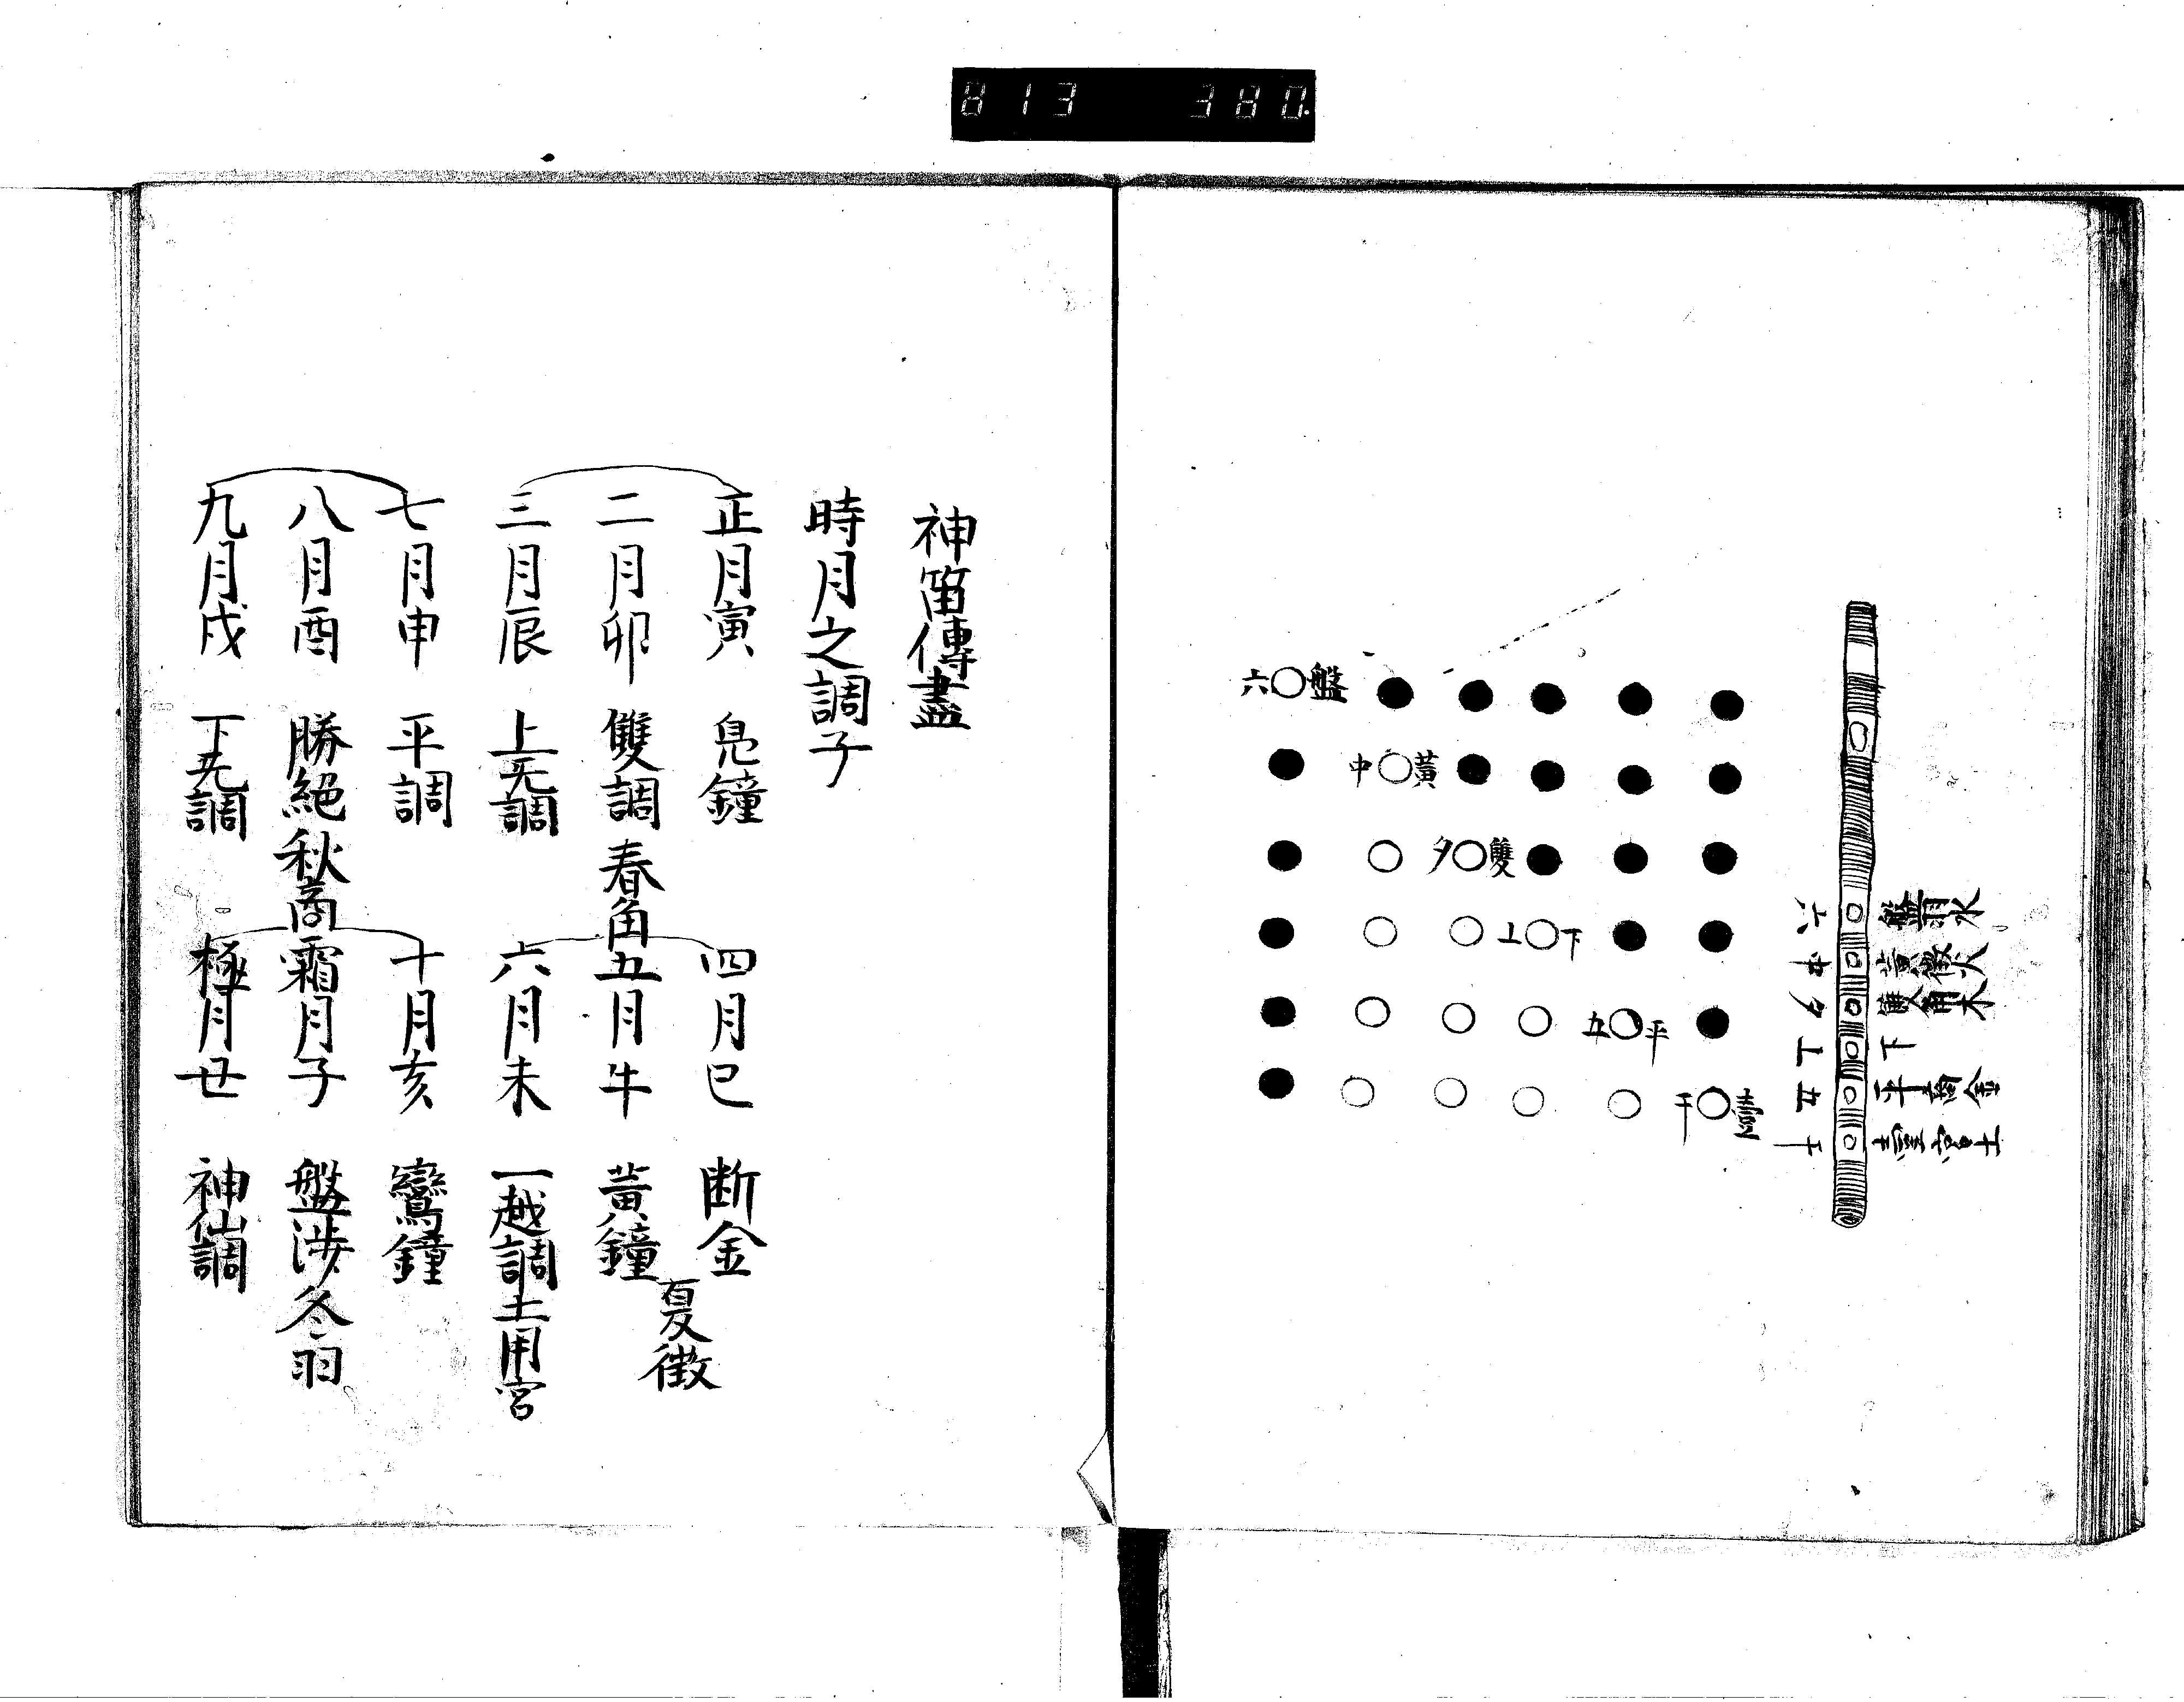 813 380
盤羽水
黄徴火
雙角木
下
平商金
壹宮土
六
中
夕
丄
五
干
六〇盤
中〇黄
夕〇雙
丄〇下
五〇平
干〇壹
神笛傳盡
時月之調子
正月寅 鳬鐘
四月巳 断金
二月卯 雙調 春角
五月牛 黄鐘 夏徴
三月辰 上无調
六月未 一越調 土用宮
七月申 平調
十月亥 鸞鐘
八月酉 勝絶 秋商
霜月子 盤渉 冬羽
九月戌 下无調
極月丑 神仙調